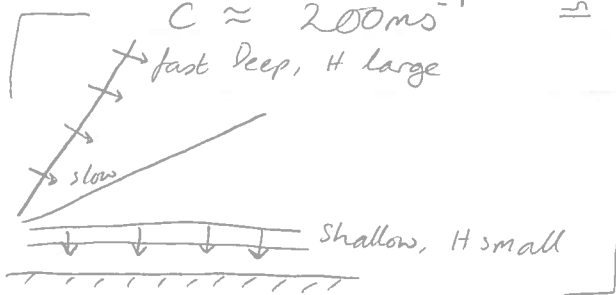 C ≈ 200ms⁻¹
fast Deep, H large
slow
shallow, H small